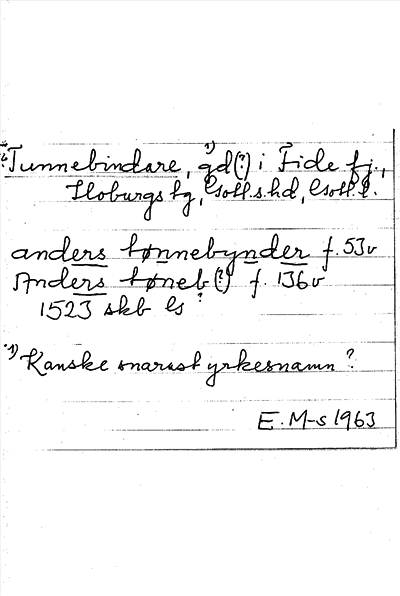 *Tunnebindare, ¹) gd(?) i Fide fj.,
Hoburgs tg, Gotl.s.hd, Gotl.l.
anders tønnebynder f. 53v
Anders tøneb(?) f. 136v
1523 skb ls ?
¹) Kanske snarast yrkesnamn?
E. M-s 1963